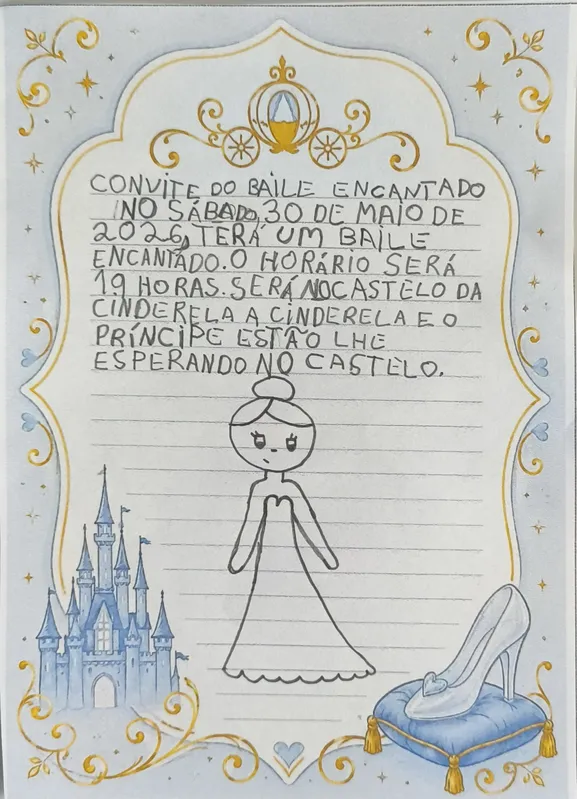 CONVITE DO BAILE ENCANTADO
NO SÁBADO, 30 DE MAIO DE
2026, TERÁ UM BAILE
ENCANTADO. O HORÁRIO SERÁ
19 HORAS. SERÁ NO CASTELO DA
CINDERELA A CINDERELA E O
PRÍNCIPE ESTÃO LHE
ESPERANDO NO CASTELO.